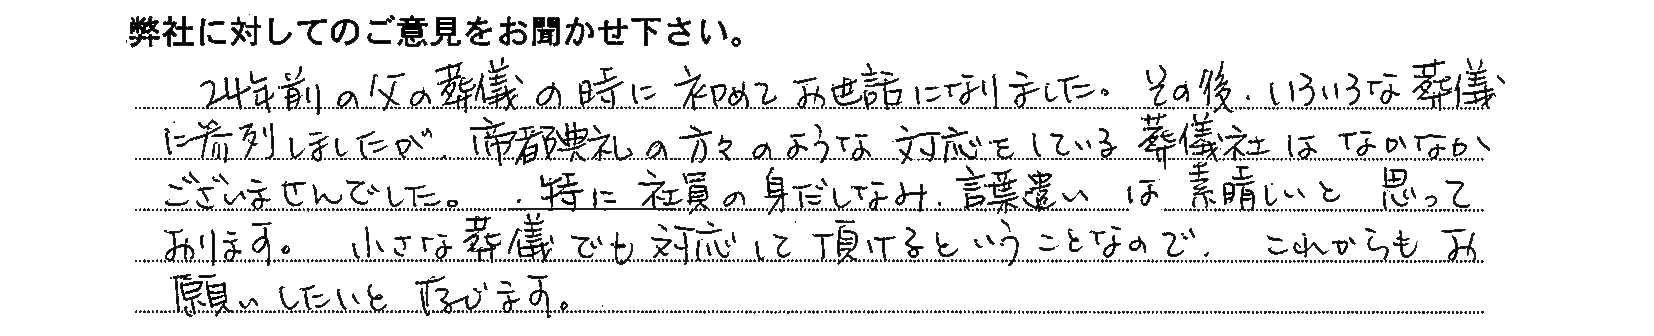 弊社に対してのご意見をお聞かせ下さい。
24年前の父の葬儀の時に初めてお世話になりました。その後、いろいろな葬儀
に参列しましたが、帝都典礼の方々のような対応をしている葬儀社はなかなか
ございませんでした。特に社員の身だしなみ、言葉遣いは素晴しいと思って
おります。小さな葬儀でも対応して頂けるということなので、これからもお
願いしたいと存じます。